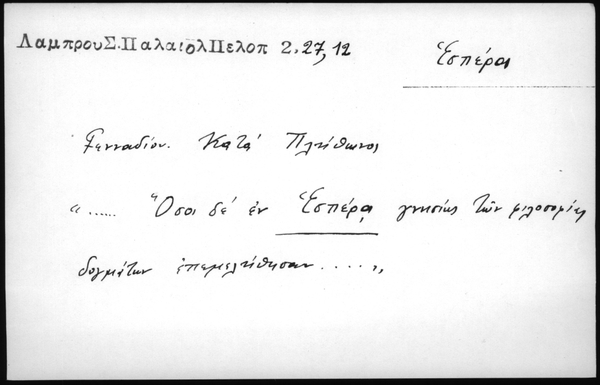 ΛαμπρουΣ.ΠαλαιολΠελοπ 2,27,12
Ἑσπέρα
Γενναδίου. Κατά Πλήθωνος
“ ..... Ὅσοι δέ ἐν Ἑσπέρᾳ γνησίως τῶν φιλοσοφίας
δογμάτων ἐπεμελήθησαν .....„